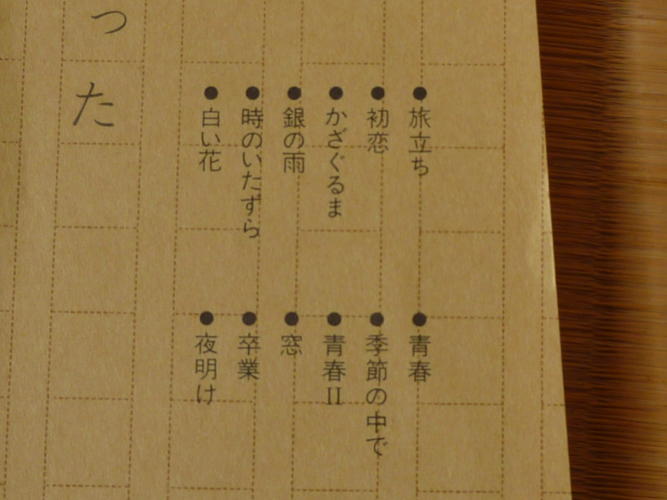 旅立ち
初恋
かざぐるま
銀の雨
時のいたずら
白い花
青春
季節の中で
青春II
窓
卒業
夜明け
った